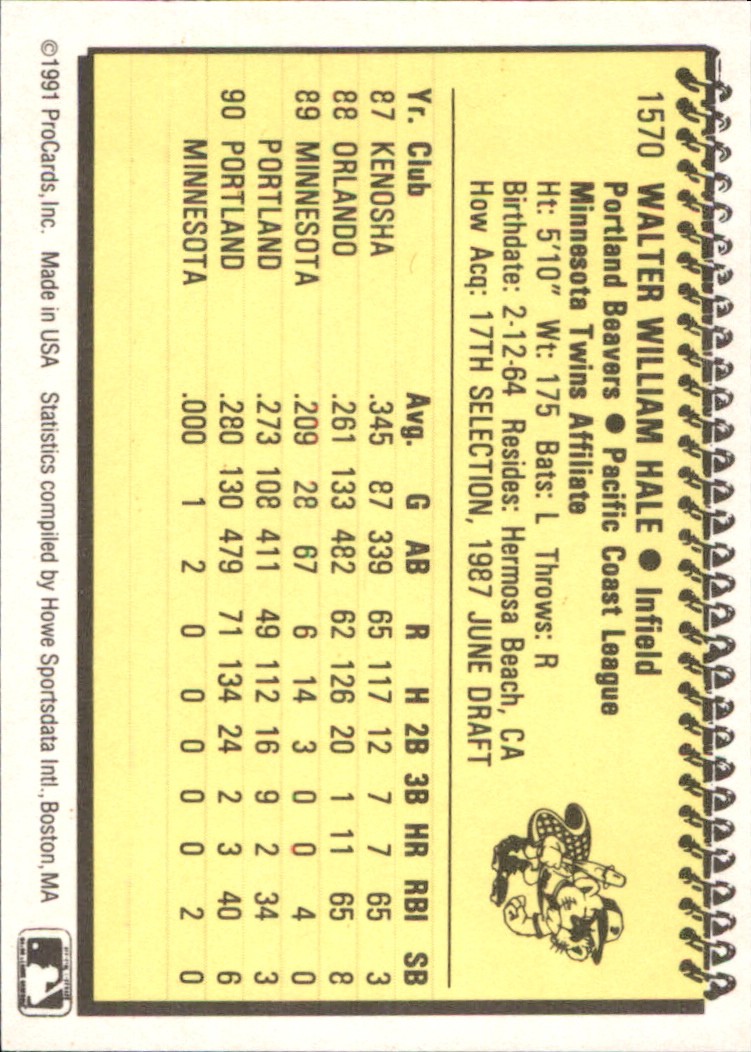 1570 WALTER WILLIAM HALE ● Infield
Portland Beavers ● Pacific Coast League
Minnesota Twins Affiliate
Ht: 5'10" Wt: 175 Bats: L Throws: R
Birthdate: 2-12-64 Resides: Hermosa Beach, CA
How Acq: 17TH SELECTION, 1987 JUNE DRAFT
Yr. Club Avg. G AB R H 2B 3B HR RBI SB
87 KENOSHA .345 87 339 65 117 12 7 7 65 3
88 ORLANDO .261 133 482 62 126 20 1 11 65 8
89 MINNESOTA .209 28 67 6 14 3 0 0 4 0
PORTLAND .273 108 411 49 112 16 9 2 34 3
90 PORTLAND .280 130 479 71 134 24 2 3 40 6
MINNESOTA .000 1 2 0 0 0 0 0 2 0
©1991 ProCards, Inc. Made in USA Statistics compiled by Howe Sportsdata Intl., Boston, MA